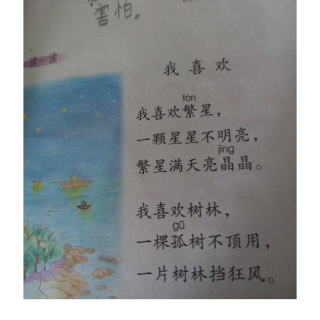 害怕。
读一读
我喜欢
fán
我喜欢繁星，
一颗星星不明亮，
jīng
繁星满天亮晶晶。
我喜欢树林，
gū
一棵孤树不顶用，
一片树林挡狂风。